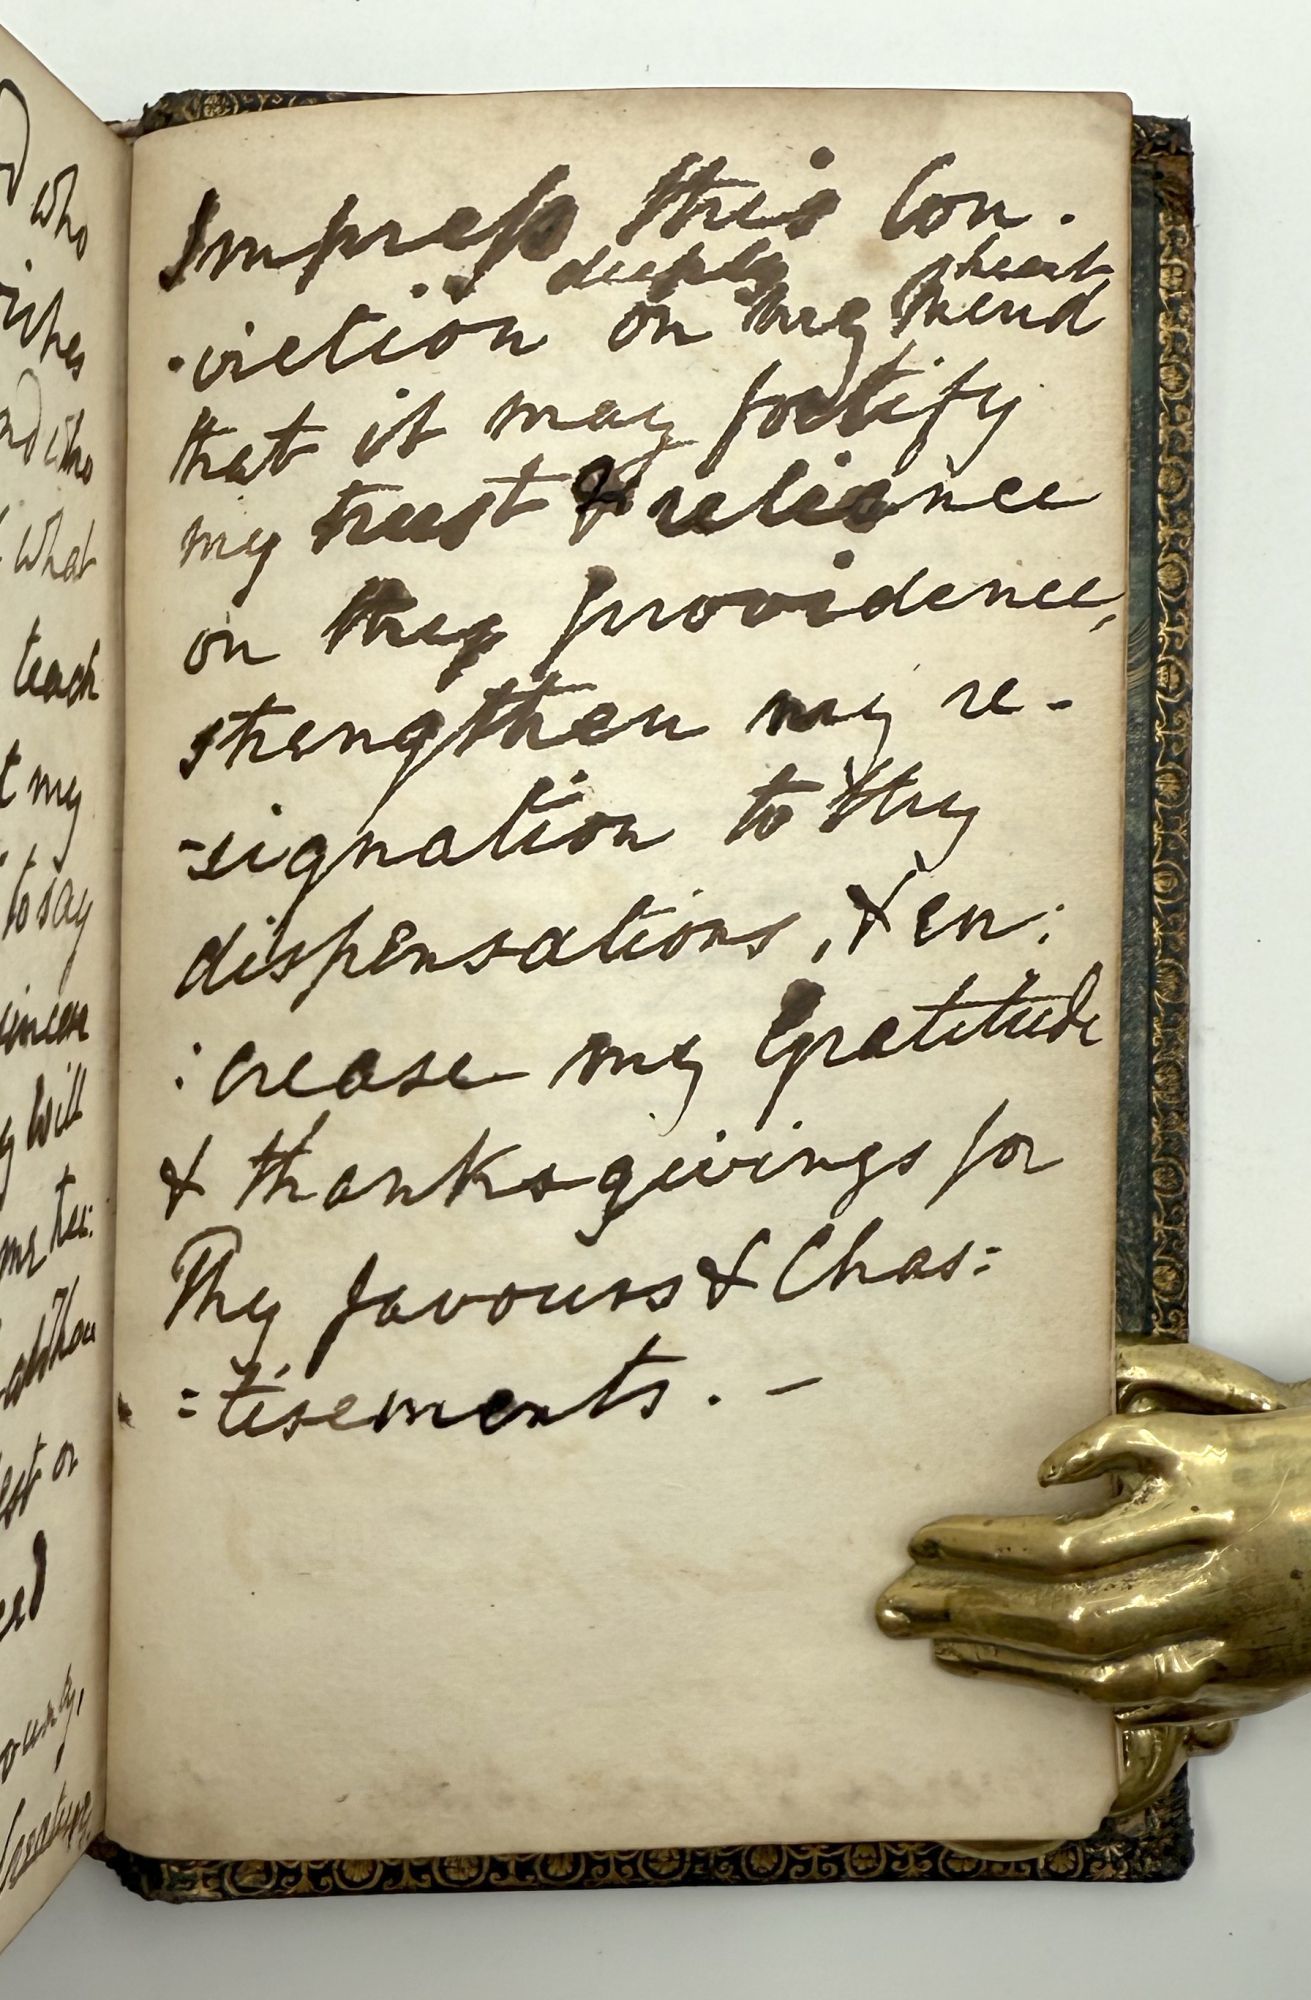 who
wishes
who
what
teach
my
to say
sincere
will
me tea:
Thou
on
Creature
Impress this Con.
deeply heart
.viction on my mind
that it may fortify
my trust & reliance
on thy providence,
strengthen my re-
-signation to thy
dispensations, & en:
:crease my Gratitude
& thanksgivings for
Thy favours & Chas=
=tisements. -